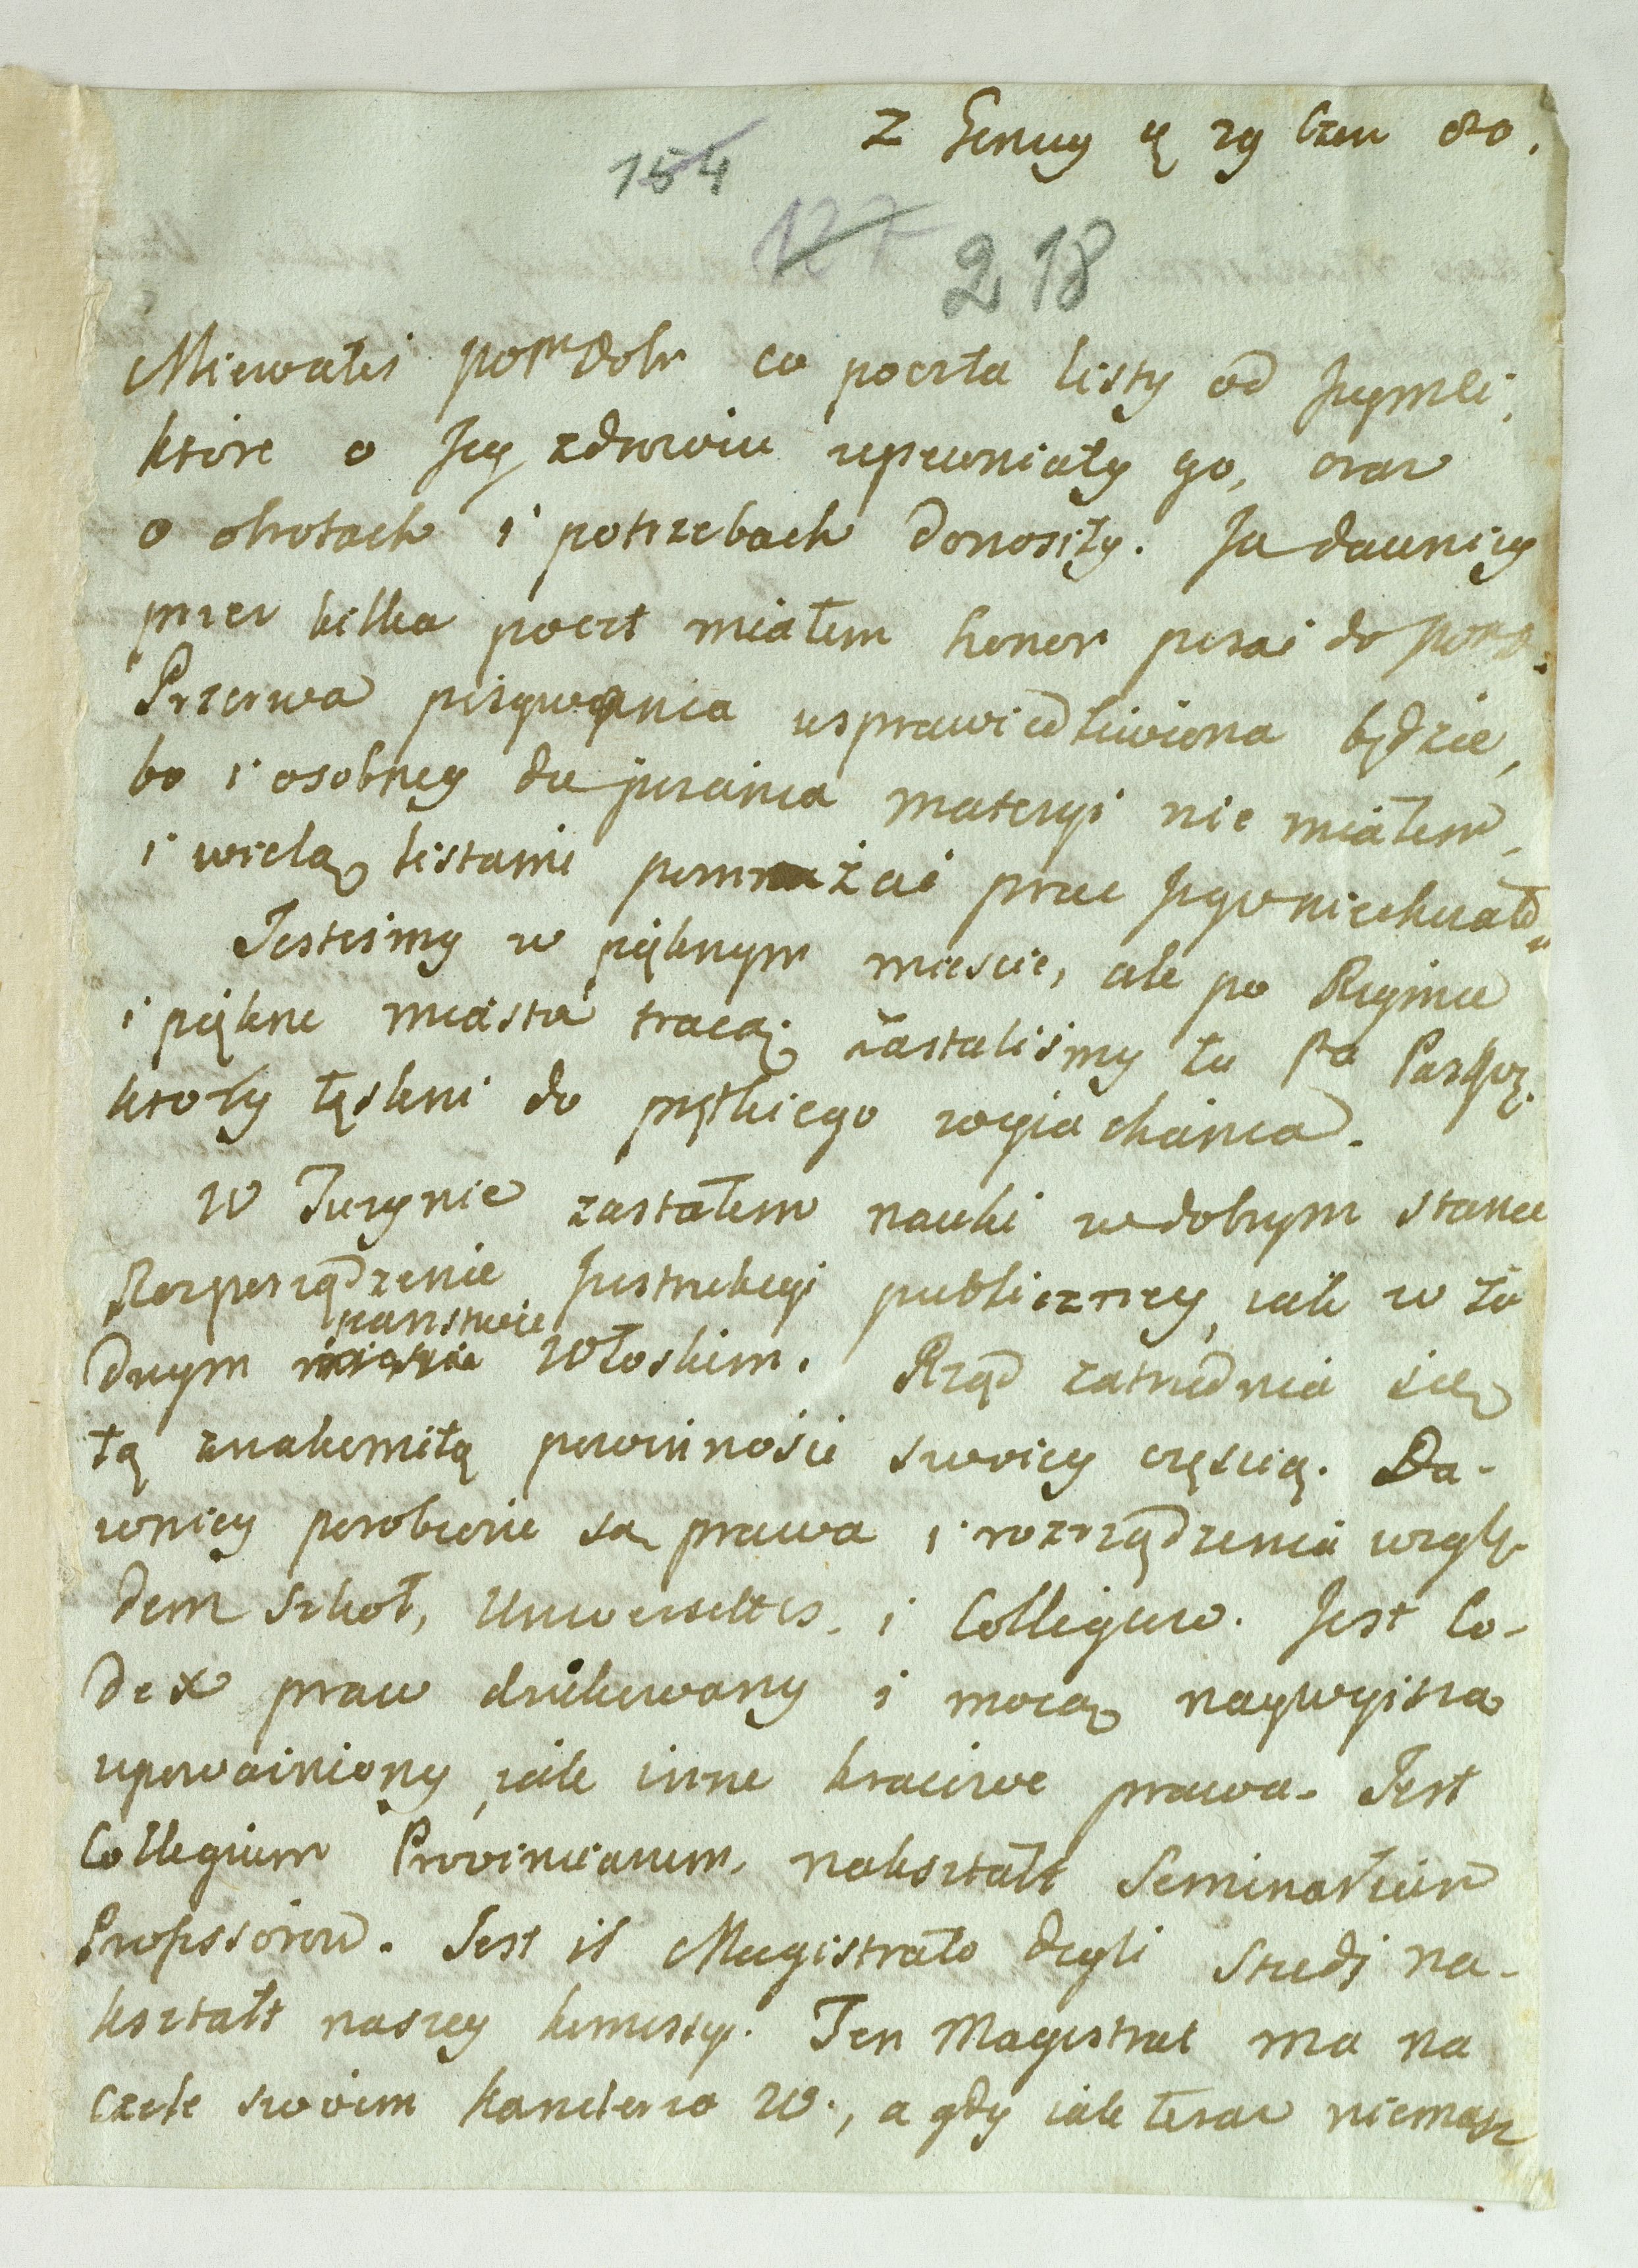 z Genuy d 29 Czer 80.
154
127
218
Miewałeś po Dobr co poczta listy od Jeymci,
które o Jey zdrowiu upewniały go, oraz
o obrotach i potrzebach donosiły. Ja dawniey
przez kilka poczt miałem honor pisać do
Przerwa pisywania usprawiedliwiona będzie,
bo i osobney do pisania materyi nie miałem,
i wielą listami pomnażać prac Jego niechciałem
Jesteśmy w pięknym mieście, ale po Rzymie
i piękne miasta tracą. Zastaliśmy tu
ktory tęskni do prętkiego wyiachania.
W Turynie zastałem nauki w dobrym stanie
Rozporządzenie Instrukcyi publiczney, iak w ża
dnym państwie Włoskim. Rząd zatrudnia się
tą znakomitą powinności swoiey częścią. Da-
wniey porobione są prawa i rozrządzenia wzglę-
dem szkoł, Uniwersitets. i Collegiów. Jest Co-
dex praw drukowany i mocą naywyższą
upoważniony, iak inne kraiowe prawa. Jest
Collegium Provinciarum, nakształt Seminarium
Professorow. Jest il Magistrato degli Studj na-
kształt naszey kommissyi. Ten Magistrat ma na
czele swoiem kanclerza W., a gdy iak teraz niemasz